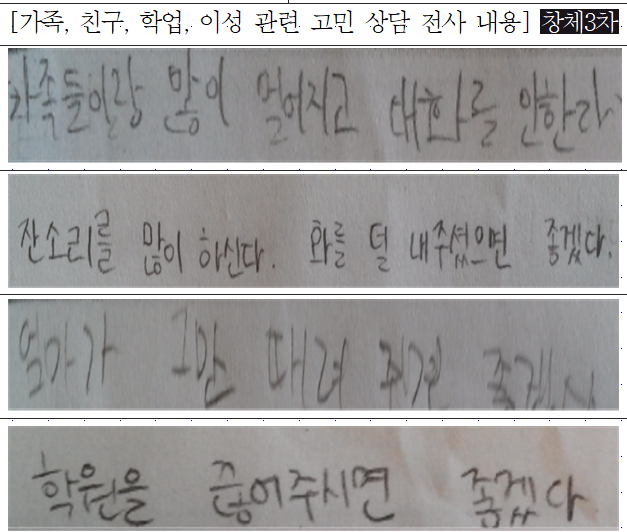 [가족, 친구, 학업, 이성 관련 고민 상담 전사 내용] 창체3차
가족들이랑 많이 멀어지고 대화를 안한다
잔소리를 많이 하신다. 화를 덜 내주셨으면 좋겠다.
엄마가 그만 때려 좋겠
학원을 끊어주시면 좋겠다